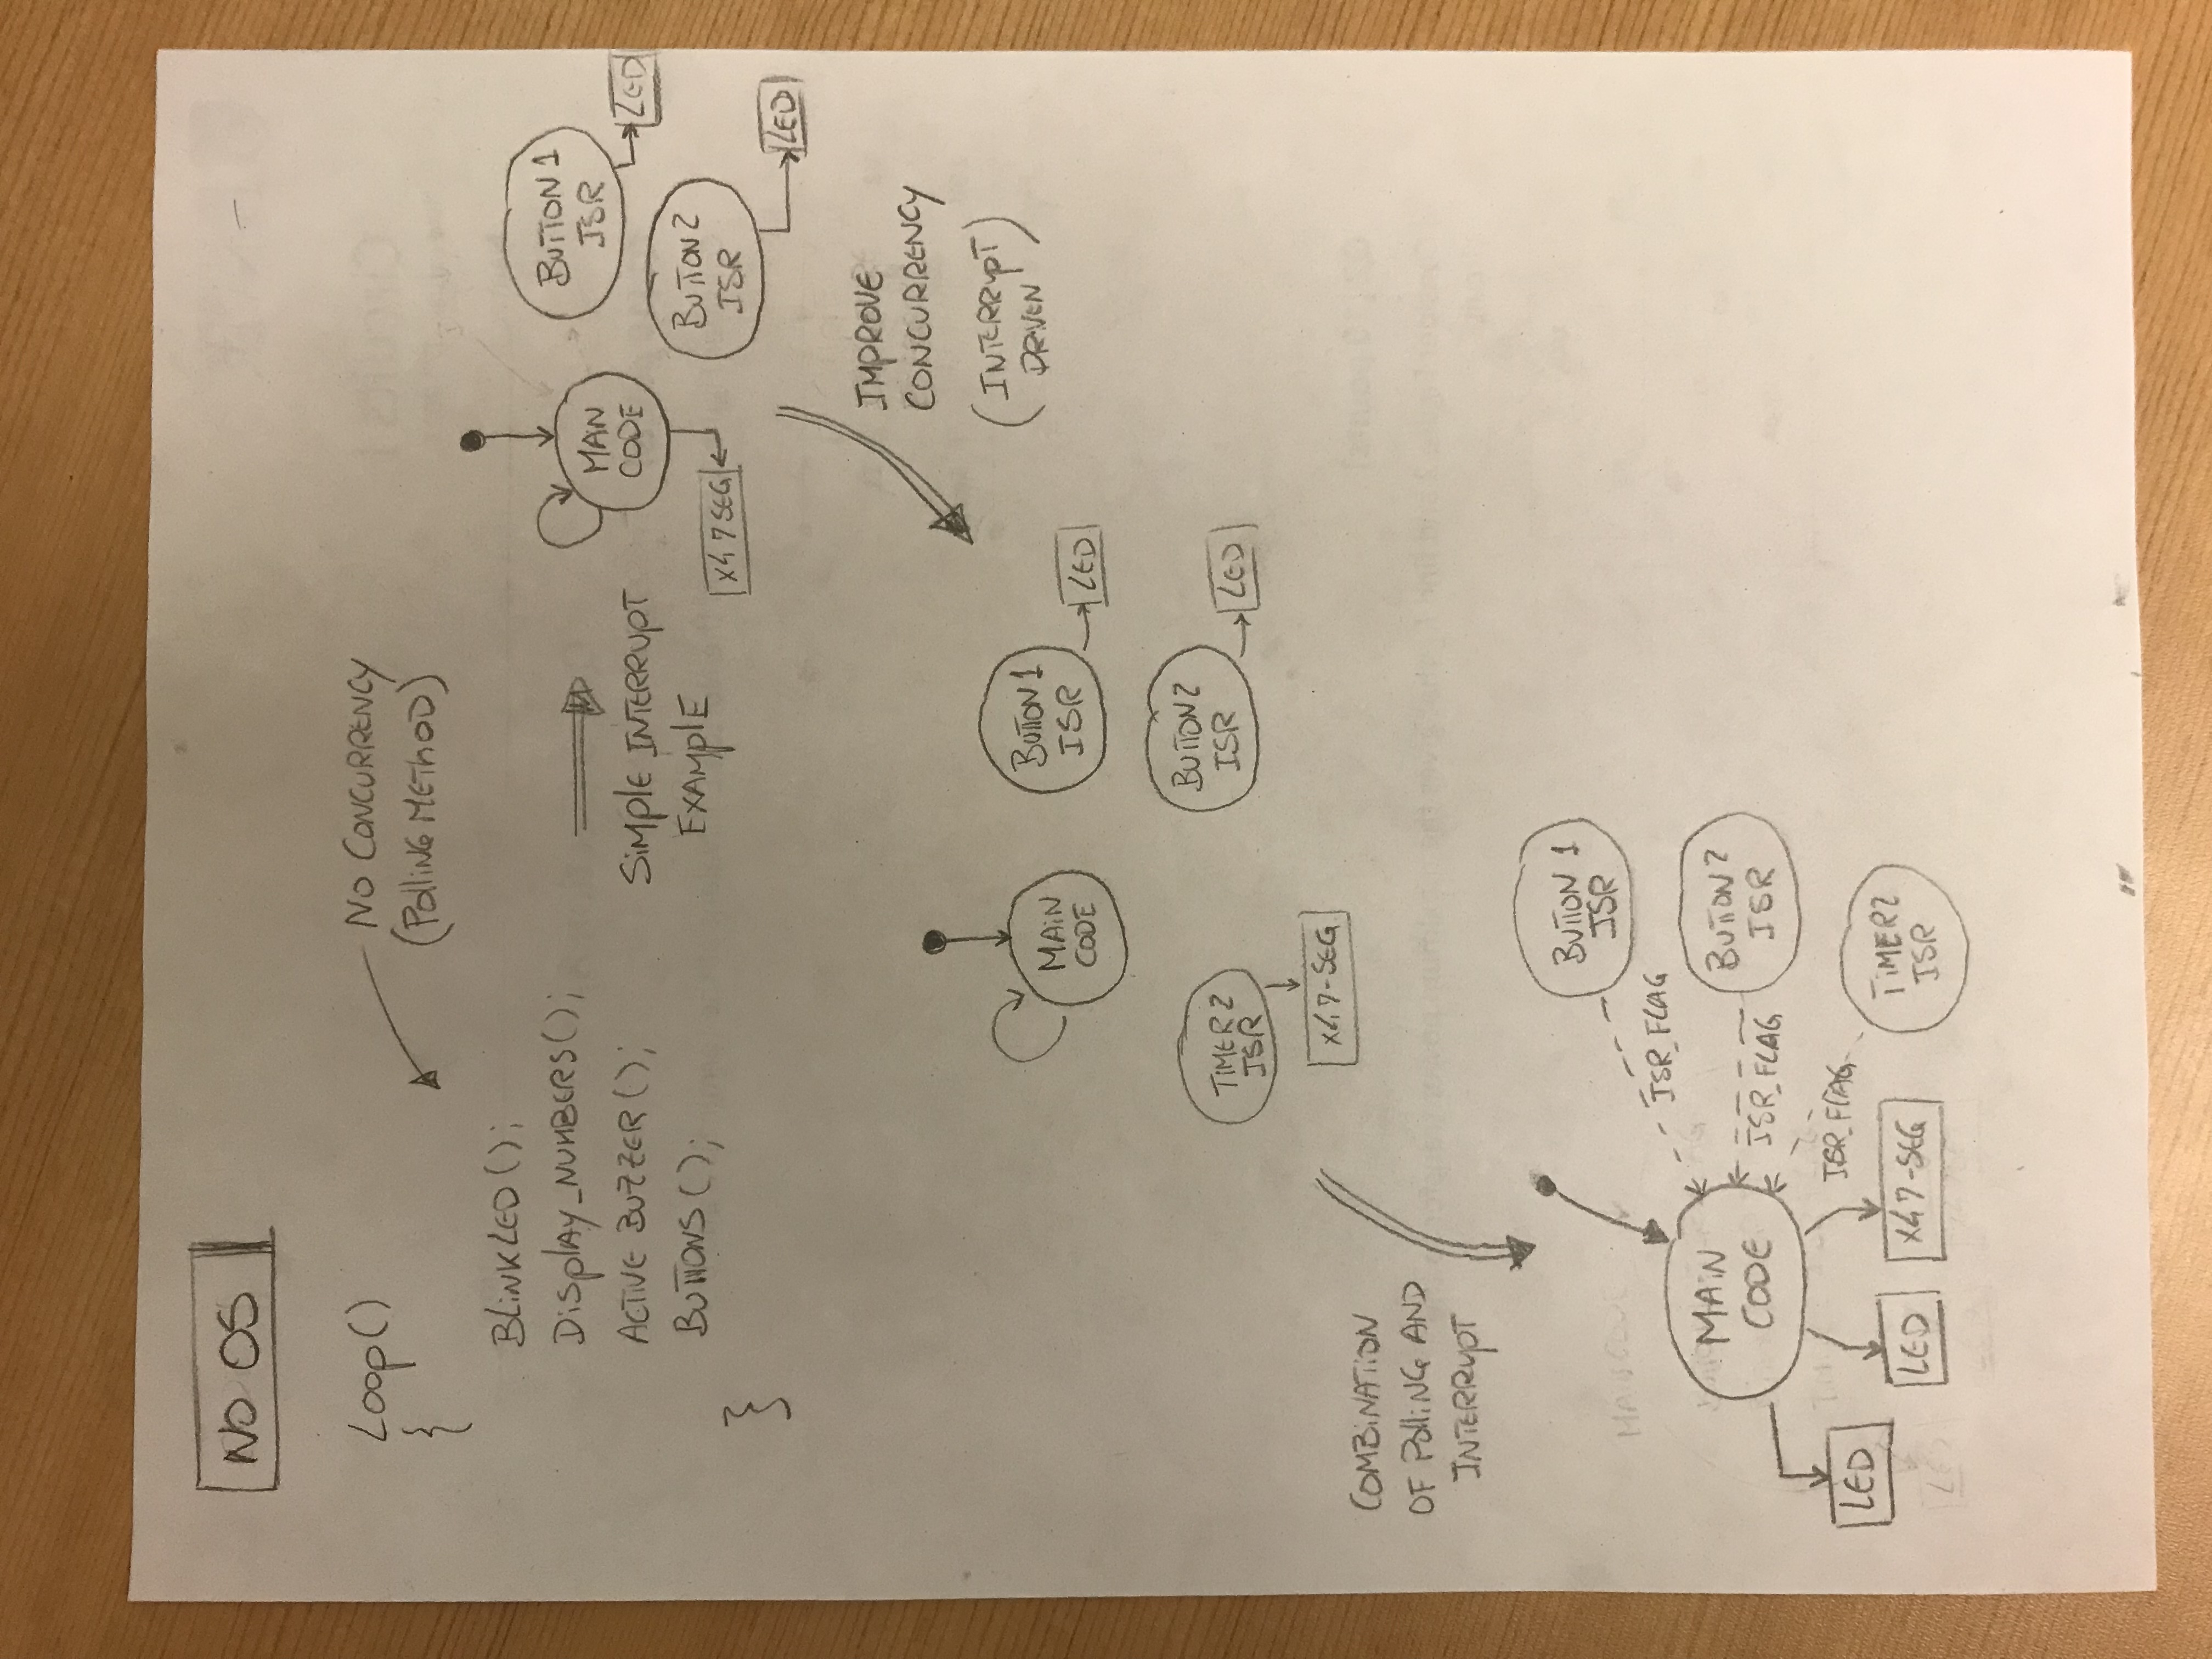 NO OS
Loop()
{
BLINKLED();
DISPLAY_NUMBERS();
ACTIVE BUZZER();
BUTTONS();
}
NO CONCURRENCY
(POLLING METHOD)
SIMPLE INTERRUPT
EXAMPLE
MAN
CODE
X4 7SEG
BUTTON 1
ISR
LED
BUTTON 2
ISR
LED
IMPROVE
CONCURRENCY
(INTERRUPT
DRIVEN)
MAIN
CODE
BUTTON 1
ISR
LED
BUTTON 2
ISR
LED
TIMER 2
ISR
X4 7-SEG
COMBINATION
OF POLLING AND
INTERRUPT
BUTTON 1
ISR
ISR_FLAG
MAIN
CODE
BUTTON 2
ISR
ISR_FLAG
ISR_FLAG
TIMER 2
ISR
LED
LED
X4 7-SEG
MAIN CODE